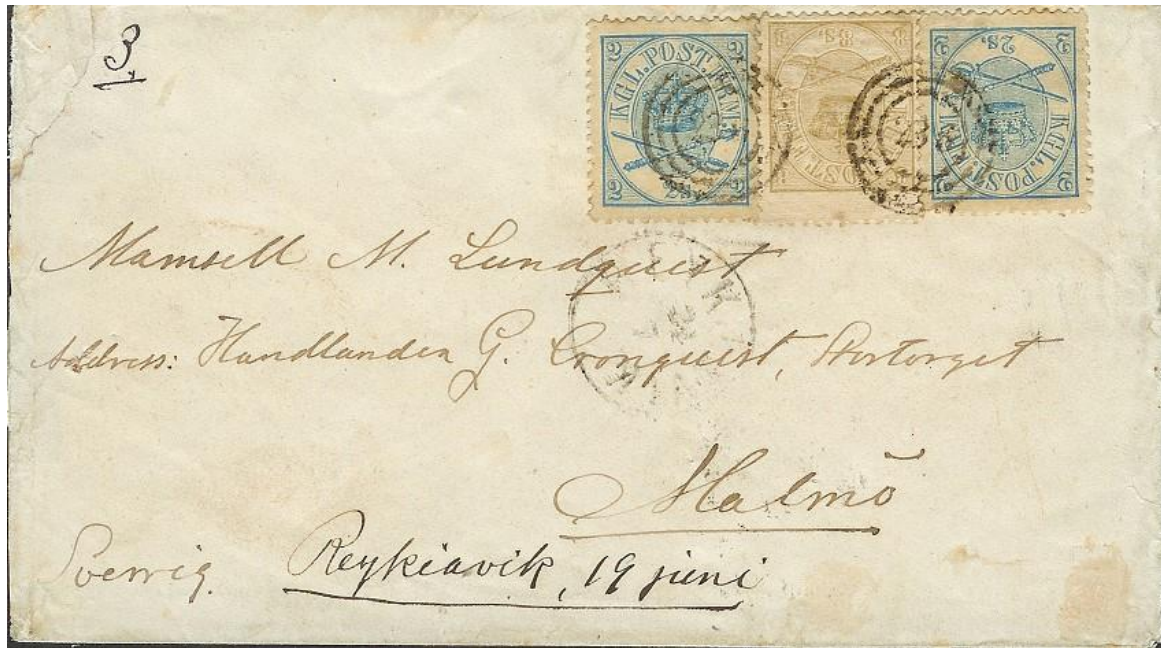 3.
2 KGL. POST. FRM. 2
2 2S. 2
8 8S. 8
2 2S. 2
2 KGL. POST. FRM. 2
Mamsell M. Lundquist
Address: Handlanden G. Cronquist, Stortorget
Malmö
Sverrig. Reykiavik, 19 juni